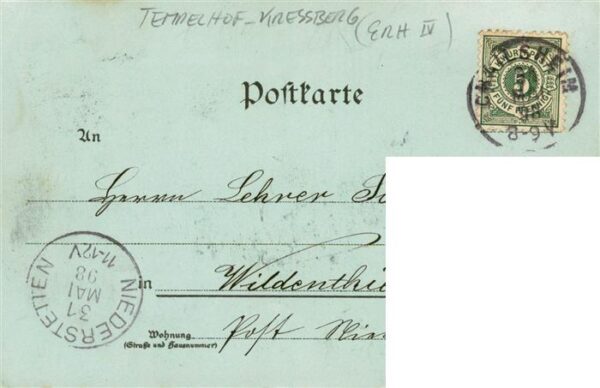 TEMPELHOF-KRESSBERG (ERH IV)
CRAILSHEIM
8-9V
5
FÜNF PFENNIG
Postkarte
An
Herrn Lehrer
in Wildenthie
Wohnung
(Straße und Hausnummer)
Post Nie
NIEDERSTETTEN
31
MAI
98
11-12V